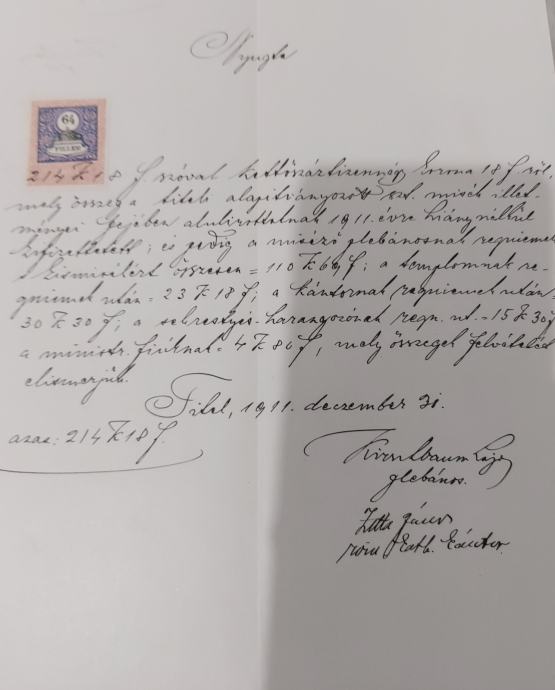 Nyugta
64
FILLÉR
214 K 18 f. szóval kettőszáztizennégy korona 18 f. ről,
mely összeg a titeli alapítványozott szt. misék illet-
ményei fejében alulirottaknak 1911. évre hiány nélkül
kifizettetett; és pedig a miséző plebánosnak requiemek
s kismisékért összesen = 110 K 66 f; a templomnak re-
quiemek után = 23 K 18 f; a kántornak requiemek után
30 K 30 f; a sekrestyés-harangozónak requ. ut. = 15 K 30 f
a ministr. fiúknak = 4 K 80 f, mely összegek felvételét
elismerjük.
Titel, 1911. deczember 31.
azaz: 214 K 18 f.
Kirschbaum Lajos
plebános.
János
róm. kath. kántor.